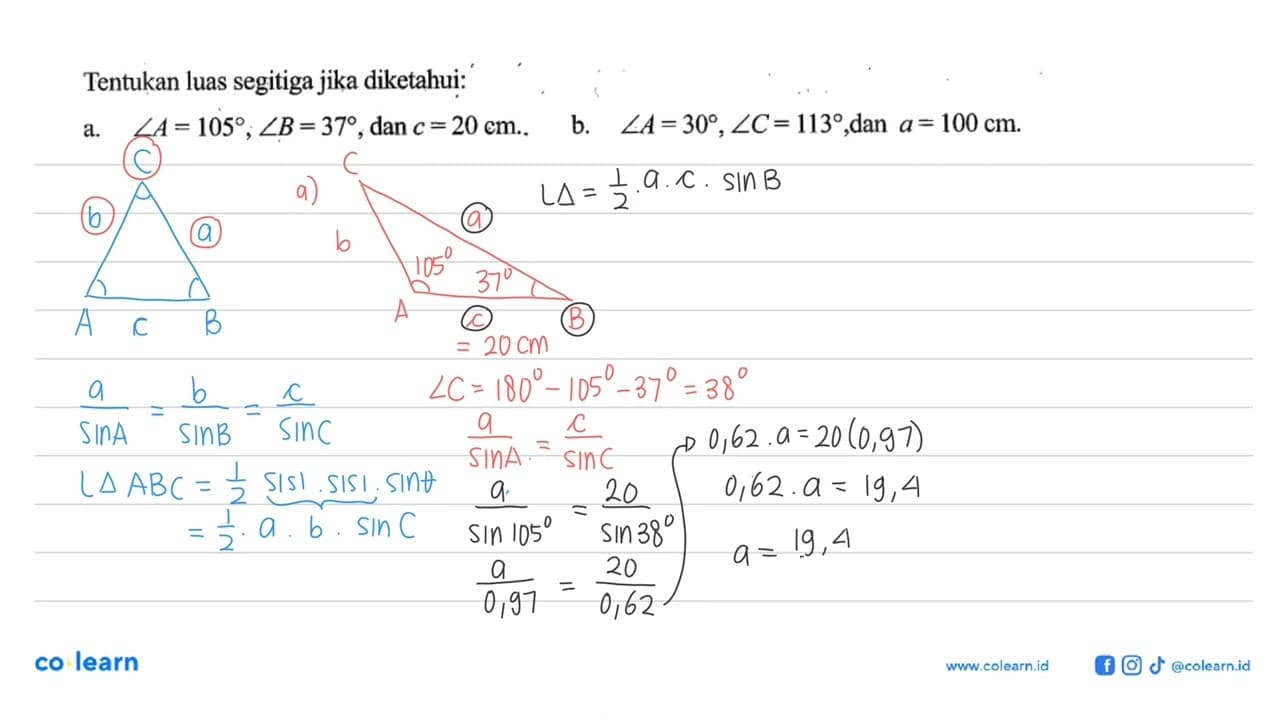 Tentukan luas segitiga jika diketahui:
a. ∠A = 105°, ∠B = 37°, dan c = 20 cm.. b. ∠A = 30°, ∠C = 113°,dan a = 100 cm.
C
b
a
A c B
a)
C
b
a
105°
37°
A
c
B
= 20 cm
L∆ = 1/2 . a . c . sin B
a/sin A = b/sin B = c/sin C
L∆ ABC = 1/2 sisi . sisi . sin θ
= 1/2 . a . b . sin C
∠C = 180° – 105° – 37° = 38°
a/sin A = c/sin C
a/sin 105° = 20/sin 38°
a/0,97 = 20/0,62
0,62 . a = 20 (0,97)
0,62 . a = 19,4
a = 19,4
co·learn
www.colearn.id
@colearn.id